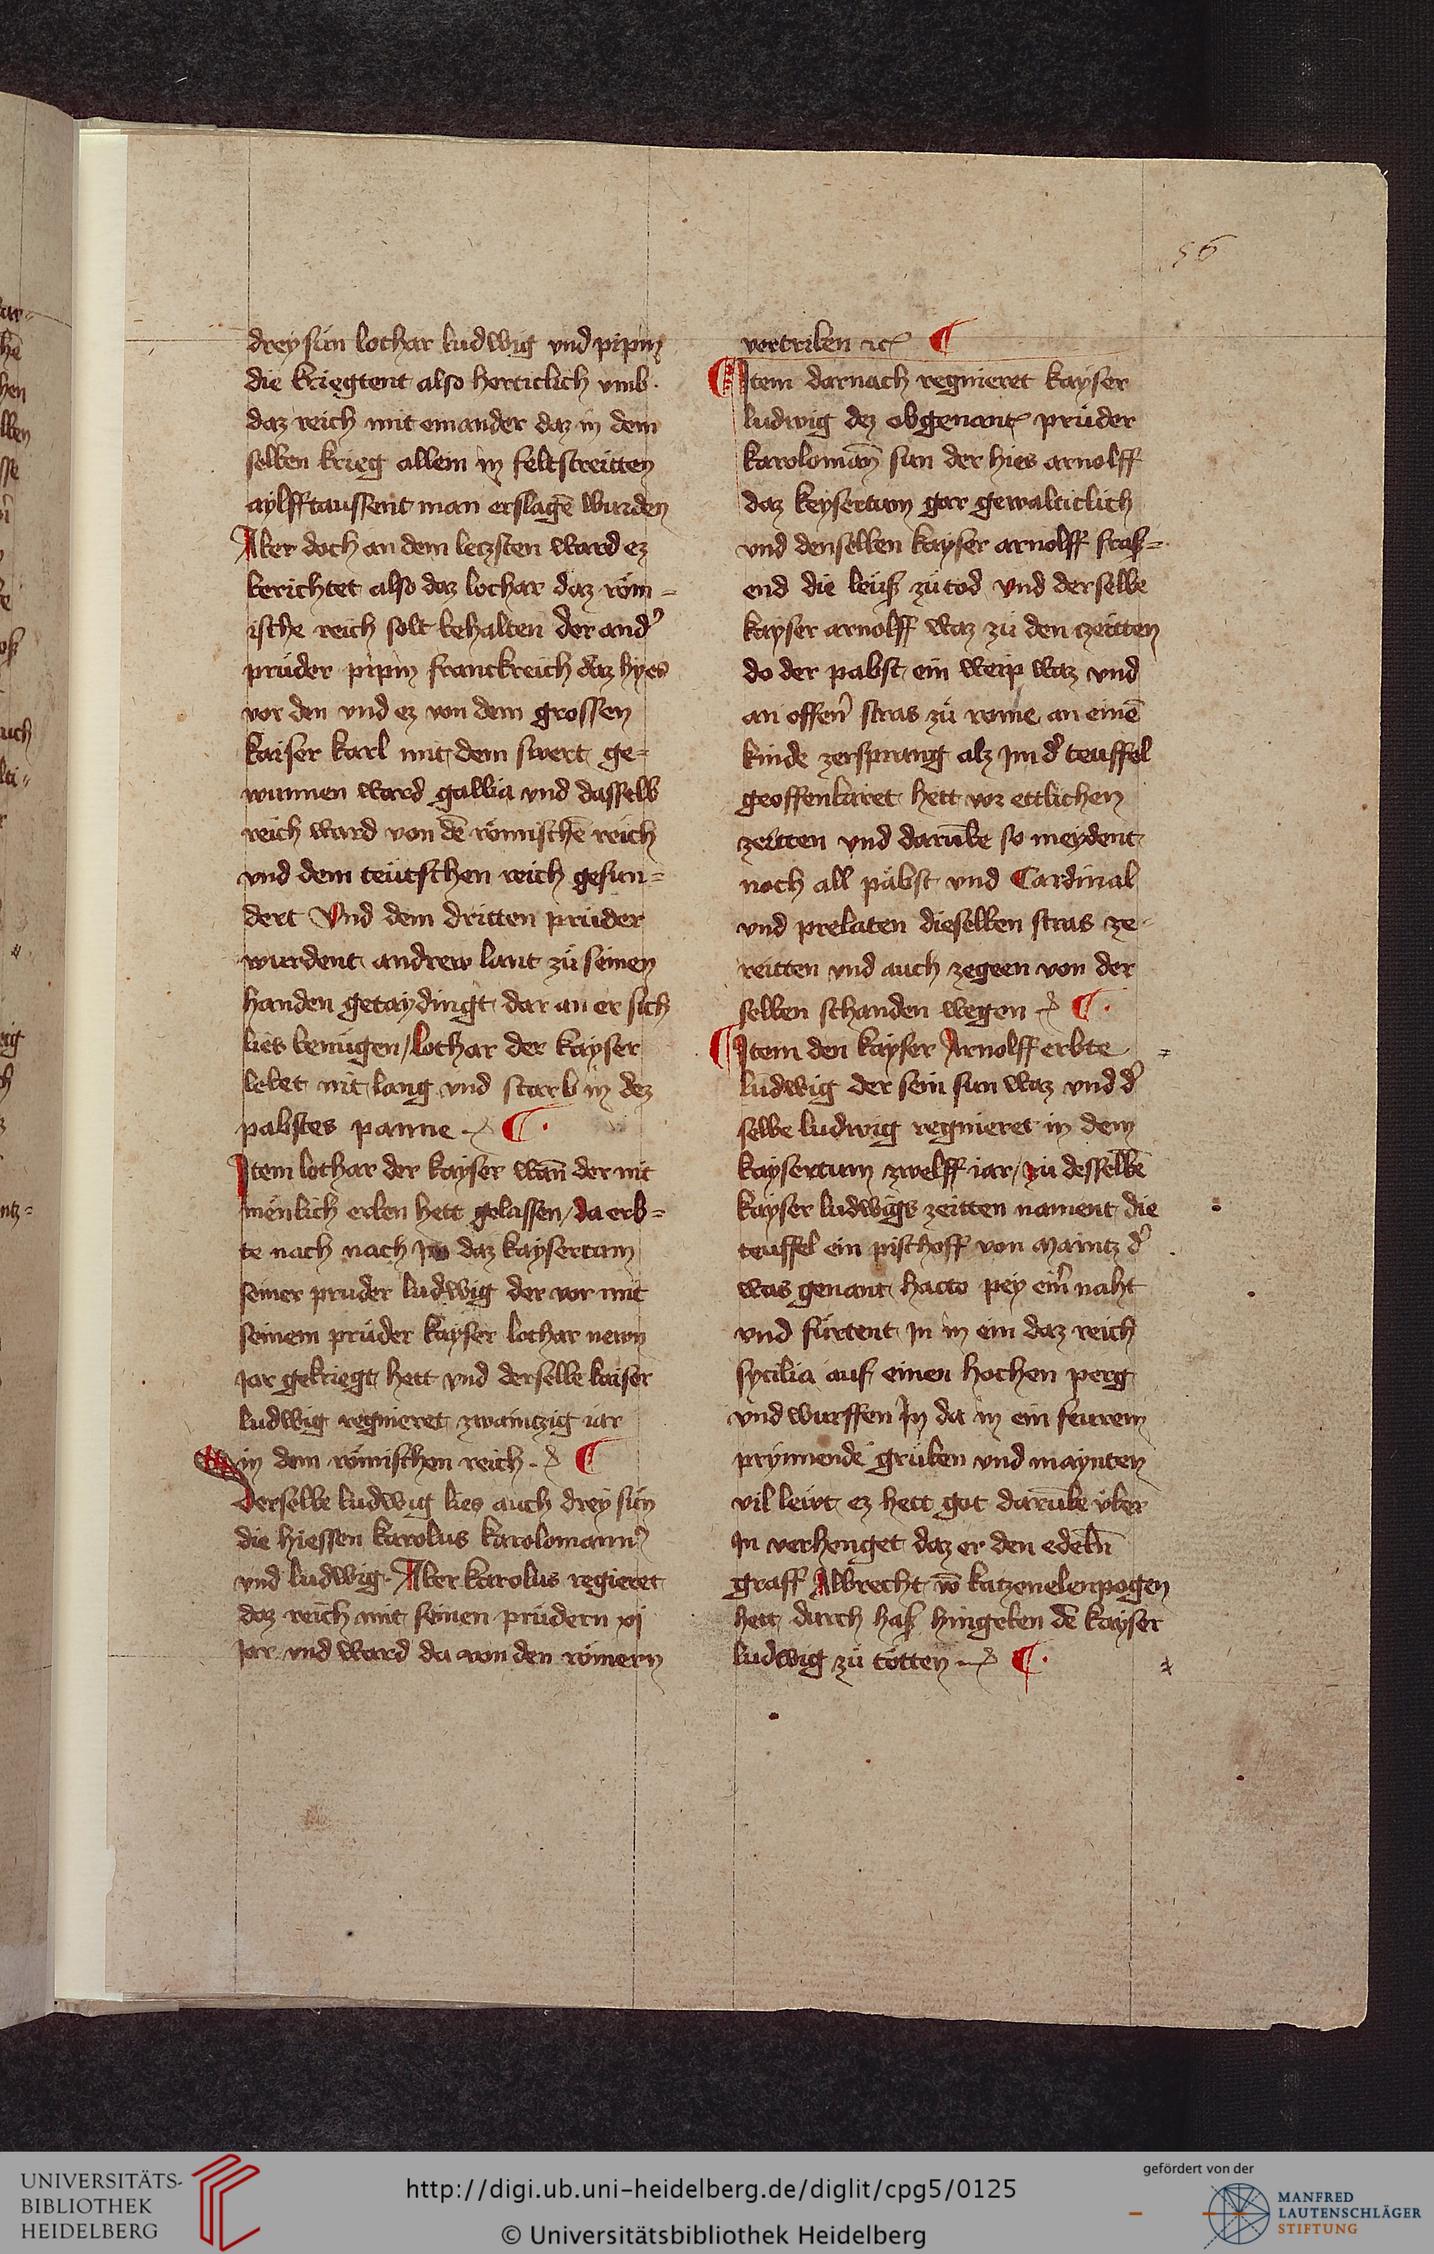 56
drey sün lothar ludwig vnd pipin
die kriegtent also herticlich vmb
daz reich mit einander daz in dem
selben krieg allein in feltstreitten
aylfftaussent man erslagē wurden
Aber doch an dem leczsten ward ez
berichtet also daz lothar daz röm=
ische reich solt behalten der and'
prüder pipin franckreich daz hyes
vor den vnd ez von dem grossen
kaiser karl mit dem swert ge=
wunnen ward gallia vnd dasselb
reich ward von dē römischē reich
vnd dem teütschen reich gesun=
dert Vnd dem dritten prüder
wurdent andrew lant zü seinen
handen getaydingt dar an er sich
lies benügen / lothar der kayser
lebet nit lang vnd starb in dez
pabstes panne ¶
Item lothar der kayser wan̄ der nit
menlich erben hett gelassen / da erb=
te nach nach jm daz kaysertum
seiner pruder ludwig der vor mit
seinem prüder kayser lothar newn
jar gekriegt hett vnd derselbe kaiser
ludwig regnieret zwaintzig iar
in dem römischen reich ¶
Derselbe ludwig lies auch drey sün
die hiessen karolus karolomann'
vnd ludwig Aber karolus regieret
daz reich mit seinen prüdern xj
jar vnd ward da von den römern
vertriben etc ¶
¶ Item darnach regnieret kayser
ludwig dez obgenant prüder
karoloman̄ sun der hies arnolff
daz keysertum gar gewalticlich
vnd denselben kayser arnolff fraß=
end die leüß zü tod Vnd derselbe
kayser arnolff waz zü den czeitten
do der pabst ein weip waz vnd
an offen' stras zü rome an einē
kinde zersprang alz jm d' teuffel
geoffenbaret hett vor ettlichen
zeitten vnd darūbe so meydent
noch all päbst vnd Cardinal
vnd prelaten dieselben stras ze
reitten vnd auch zegeen von der
selben schanden wegen ¶
¶ Item den kayser Arnolff erbte
ludwig der sein sun waz vnd d'
selbe ludwig regnieret in dem
kaysertum zwelff iar / zü desselbē
kayser ludwigs zeitten nament die
teuffel ein pischoff von maintz d'
was genant hatto pey ein' naht
vnd fürtent jn in ein daz reich
sycilia auf einen hochen perg
vnd wurffen jn da in ein feurem
prynnende grüben vnd maynten
vil lewt ez hett got darūbe über
jn verhenget daz er den edeln̄
graff Albrecht vō katzenelenpogen
hett durch haß hingeben dē kayser
ludwig zü tötten ¶
UNIVERSITÄTS-
BIBLIOTHEK
HEIDELBERG
http://digi.ub.uni-heidelberg.de/diglit/cpg5/0125
© Universitätsbibliothek Heidelberg
gefördert von der
MANFRED
LAUTENSCHLÄGER
STIFTUNG